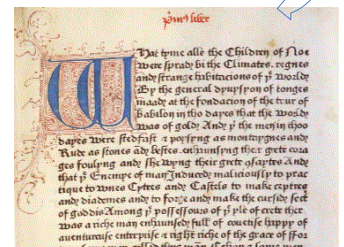 p̃mus liber
What tyme alle the Children of Noe
were sprady bi the Climates. regnes
and strange habitacions of þe worlde
By the general dyuysyon of tonges
maady at the fondacion of the tour of
babilon in tho dayes that the worlde
was of golde And þe the men in thoo
dayes were stedfast & poysyng as montaygnes and
Rude as stones and bestes. enhaunsyng their grete cora
ges foulyng and shewyng their grete
that þe Enemye of man Induced maliciously to prac
tique to wnes Cytees and Castels to make ceptres
and diademes and to forge and make the cursed sect
of goddis Among þe possessours of þe yle of crete ther
was a riche man enhaunsed full of couetise happy of
auentureuse enterpryse & right riche of the grace of ffor